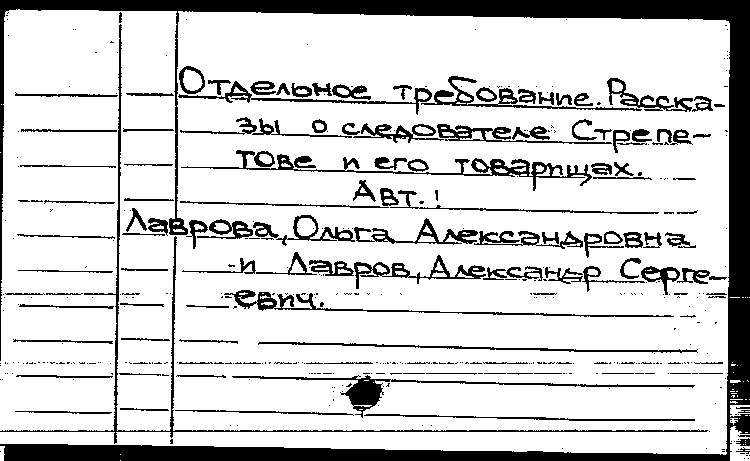 Отдельное требование. Расска-
зы о следователе Стрепе-
тове и его товарищах.
Авт.!
Лаврова, Ольга Александровна
и Лавров, Александр Серге-
евич.